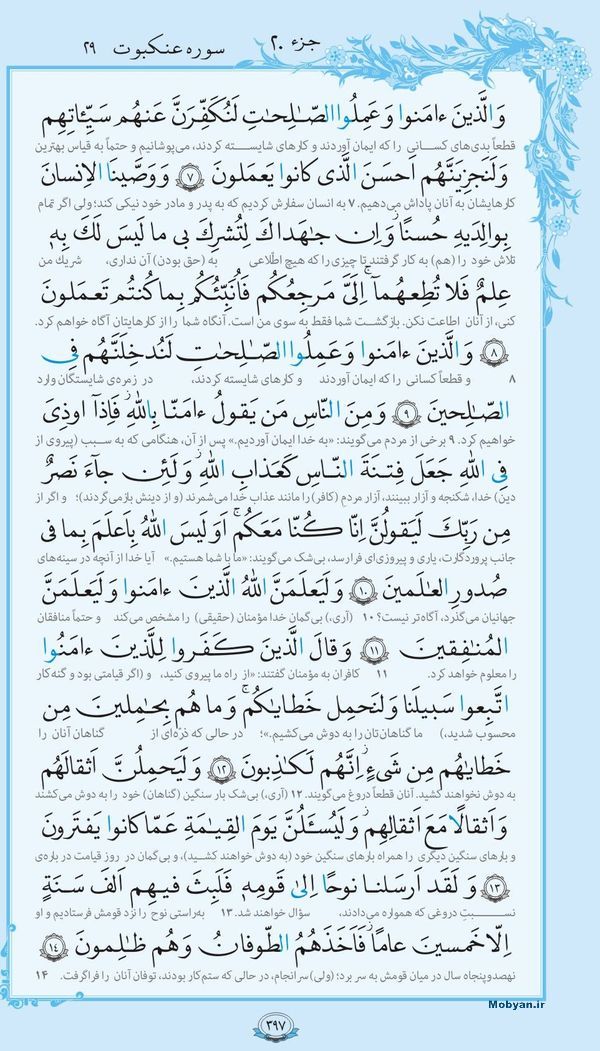 جزء ۲۰ سوره عنکبوت ۲۹
وَ الَّذینَ ءامَنوا وَ عَمِلُوا الصّـالِحـٰتِ لَنُکَفِّرَنَّ عَنهُم سَیِّـٔاتِهِم
قطعاً بدی‌های کسانی را که ایمان آوردند و کارهای شایسته کردند، می‌پوشانیم و حتماً به قیاس بهترین
وَ لَنَجزِیَنَّهُم اَحسَنَ الَّذی کانوا یَعمَلونَ ﴿۷﴾ وَ وَصَّینَا الاِنسانَ
کارهایشان به آنان پاداش می‌دهیم. ۷ به انسان سفارش کردیم که به پدر و مادر خود نیکی کند؛ ولی اگر تمام
بِوالِدَیهِ حُسنًا وَ اِن جـٰهَداکَ لِتُشرِکَ بی ما لَیسَ لَکَ بِهٖ
تلاش خود را (هم) به کار گرفتند تا چیزی را که هیچ اطّلاعی به (حق بودن) آن نداری، شریك من
عِلمٌ فَلا تُطِعهُما اِلَیَّ مَرجِعُکُم فَاُنَبِّئُکُم بِما کُنتُم تَعمَلونَ
کنی، از آنان اطاعت نکن. بازگشت شما فقط به سوی من است. آنگاه شما را از کارهایتان آگاه خواهم کرد.
﴿۸﴾ وَ الَّذینَ ءامَنوا وَ عَمِلُوا الصّـالِحـٰتِ لَنُدخِلَنَّهُم فِی
۸ و قطعاً کسانی را که ایمان آوردند و کارهای شایسته کردند، در زمره‌ی شایستگان وارد
الصّـالِحینَ ﴿۹﴾ وَ مِنَ النّاسِ مَن یَقولُ ءامَنّا بِاللهِ فَاِذا اوذِیَ
خواهیم کرد. ۹ برخی از مردم می‌گویند: «به خدا ایمان آوردیم.» پس از آن، هنگامی که به سبب (پیروی از
فِی اللهِ جَعَلَ فِتنَةَ النّـاسِ کَعَذابِ اللهِ وَ لَئِن جاءَ نَصرٌ
دین) خدا، شکنجه و آزار ببینند، آزار مردم (کافر) را مانند عذاب خدا می‌شمرند (و از دینش بازمی‌گردند)؛ و اگر از
مِن رَبِّکَ لَیَقولُنَّ اِنّا کُنّا مَعَکُم اَوَ لَیسَ اللهُ بِاَعلَمَ بِما فی
جانب پروردگارت، یاری و پیروزی‌ای فرارسد، بی‌شک می‌گویند: «ما با شما هستیم.» آیا خدا از آنچه در سینه‌های
صُدورِ العـٰلَمینَ ﴿۱۰﴾ وَ لَیَعلَمَنَّ اللهُ الَّذینَ ءامَنوا وَ لَیَعلَمَنَّ
جهانیان می‌گذرد، آگاه‌تر نیست؟ ۱۰ (آری،) بی‌گمان خدا مؤمنان (حقیقی) را مشخص می‌کند و حتماً منافقان
المُنـٰفِقینَ ﴿۱۱﴾ وَ قالَ الَّذینَ کَفَروا لِلَّذینَ ءامَنُوا
را معلوم خواهد کرد. ۱۱ کافران به مؤمنان گفتند: «از راه ما پیروی کنید، و (اگر قیامتی بود و گنه‌کار
اتَّبِعوا سَبیلَنا وَ لنَحمِل خَطـایـٰکُم وَ ما هُم بِحـٰمِلینَ مِن
محسوب شدید،) ما گناهان‌تان را به دوش می‌کشیم.»؛ در حالی که ذرّه‌ای از گناهان آنان را
خَطـایـٰهُم مِن شَیءٍ اِنَّهُم لَکـٰذِبونَ ﴿۱۲﴾ وَ لَیَحمِلُنَّ اَثقالَهُم
به دوش نخواهند کشید. آنان قطعاً دروغ می‌گویند. ۱۲ (آری،) بی‌شک بار سنگین (گناهان) خود را به دوش می‌کشند
وَ اَثقالًا مَعَ اَثقالِهِم وَ لَیُسـَٔلُنَّ یَومَ القِیـٰمَةِ عَمّا کانوا یَفتَرونَ
و بارهای سنگین دیگری را همراه بارهای سنگین خود (به دوش خواهند کشید)، و بی‌گمان در روز قیامت درباره‌ی
﴿۱۳﴾ وَ لَقَد اَرسَلنا نوحًا اِلیٰ قَومِهٖ فَلَبِثَ فیهِم اَلفَ سَنَةٍ
نسبتِ دروغی که همواره می‌دادند، سؤال خواهند شد. ۱۳ به‌راستی نوح را نزد قومش فرستادیم و او
اِلّا خَمسینَ عامًا فَاَخَذَهُمُ الطّوفانُ وَ هُم ظـٰلِمونَ ﴿۱۴﴾
نهصدوپنجاه سال در میان قومش به سر برد؛ (ولی) سرانجام، در حالی که ستم‌کار بودند، توفان آنان را فراگرفت. ۱۴
Mobyan.ir
۳۹۷